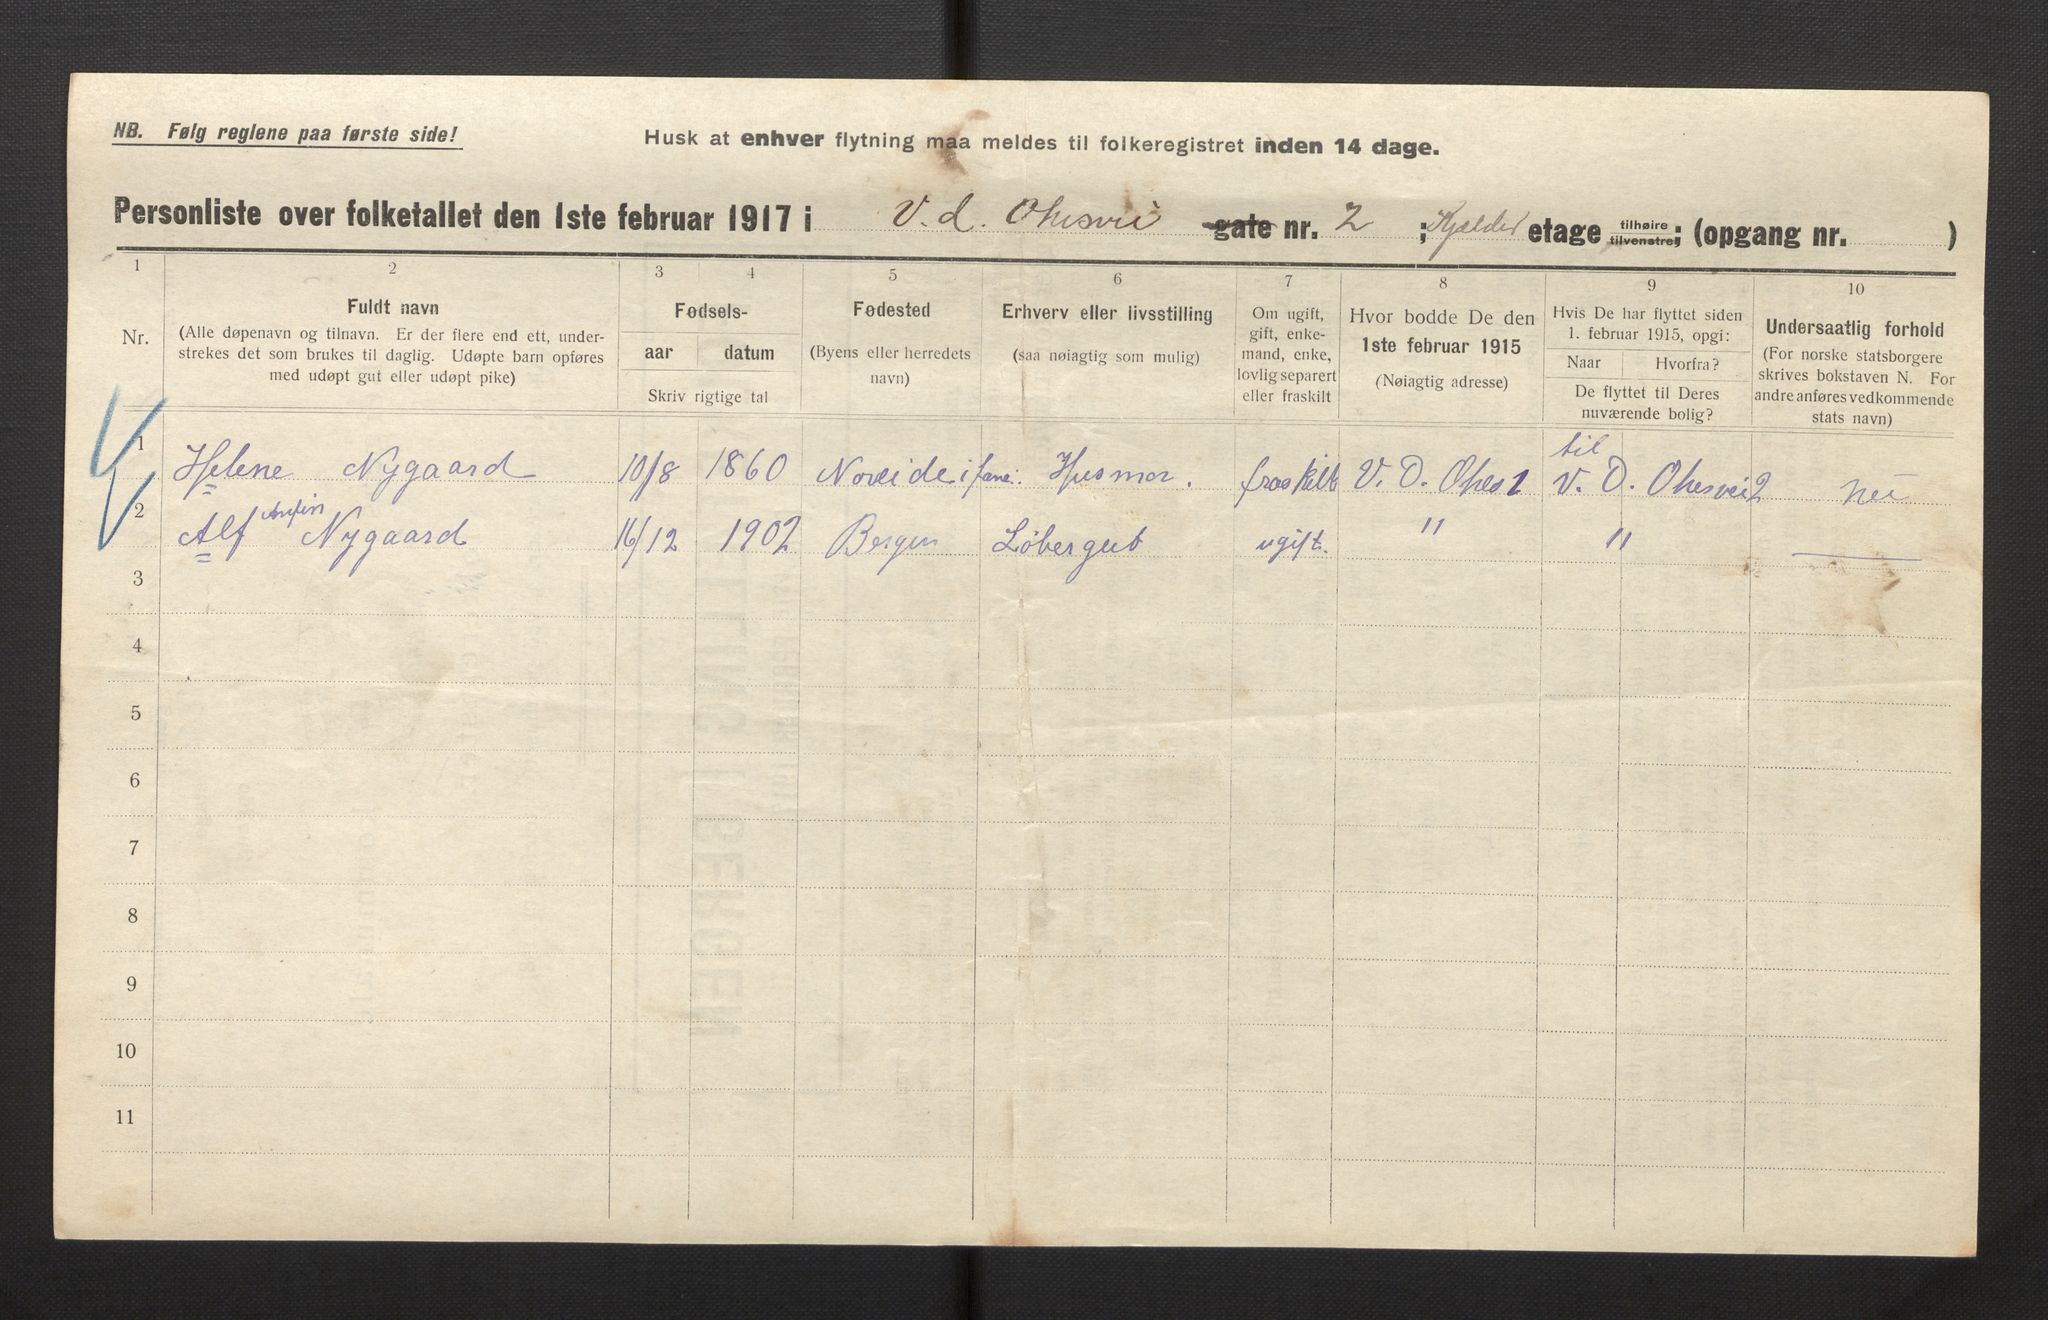 NB. Følg reglene paa første side!
Husk at enhver flytning maa meldes til folkeregistret inden 14 dage.
Personliste over folketallet den 1ste februar 1917 i V. d. Ohesvei gate nr. 2 ; Kjelder etage tilhøire tilvenstre; (opgang nr. )
1 2 3 4 5 6 7 8 9 10
Nr.
Fuldt navn
(Alle døpenavn og tilnavn. Er der flere end ett, under-
strekes det som brukes til daglig. Udøpte barn opføres
med udøpt gut eller udøpt pike)
Fødsels-
aar datum
Skriv rigtige tal
Fødested
(Byens eller herredets
navn)
Erhverv eller livsstilling
(saa nøiagtig som mulig)
Om ugift,
gift, enke-
mand, enke,
lovlig separert
eller fraskilt
Hvor bodde De den
1ste februar 1915
(Nøiagtig adresse)
Hvis De har flyttet siden
1. februar 1915, opgi:
Naar Hvorfra?
De flyttet til Deres
nuværende bolig?
Undersaatlig forhold
(For norske statsborgere
skrives bokstaven N. For
andre anføres vedkommende
stats navn)
til
1 Helene Nygaard 10/8 1860 Noreide i fane. Husmor. fraskilt V. D. Ohes 2 V. D. Ohesvei 2 nei
2 Alf Nygaard 16/12 1902 Bergen Løbergut ugift. " "
3
4
5
6
7
8
9
10
11